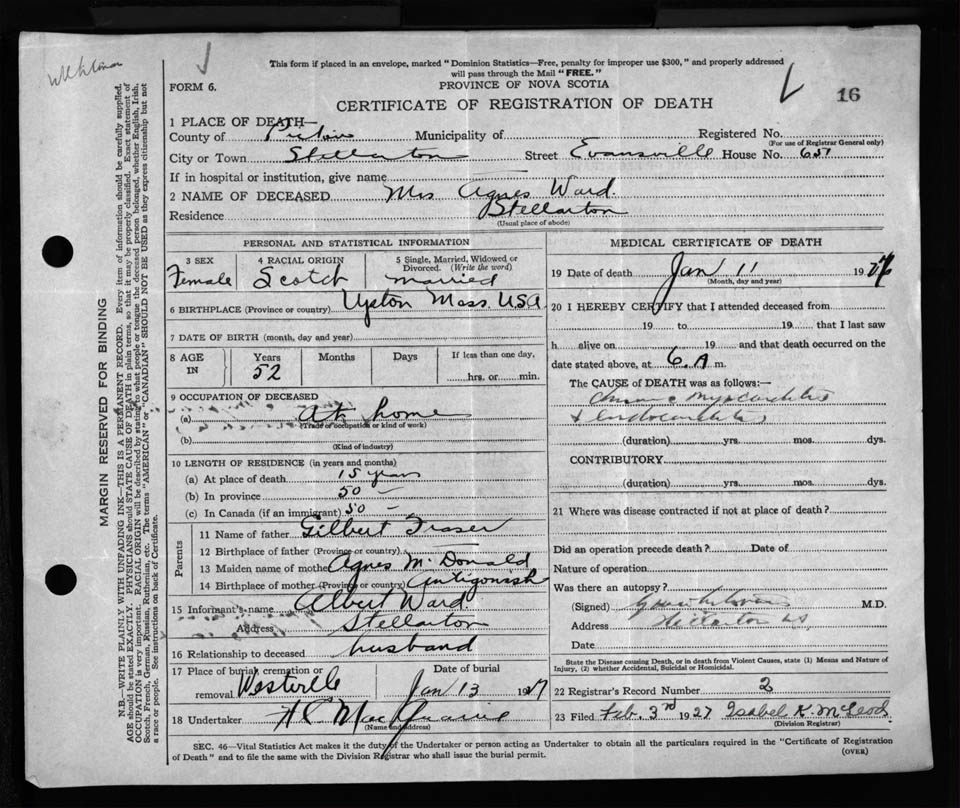 This form if placed in an envelope, marked "Dominion Statistics—Free, penalty for improper use $300," and properly addressed
will pass through the Mail "FREE."
FORM 6.
PROVINCE OF NOVA SCOTIA
16
CERTIFICATE OF REGISTRATION OF DEATH
1 PLACE OF DEATH—
County of Pictou Municipality of Registered No.
(For use of Registrar General only)
City or Town Stellarton Street Evansville House No. 657
If in hospital or institution, give name
2 NAME OF DECEASED Mrs Agnes Ward.
Residence Stellarton
(Usual place of abode)
PERSONAL AND STATISTICAL INFORMATION
3 SEX 4 RACIAL ORIGIN 5 Single, Married, Widowed or
Divorced. (Write the word)
Female Scotch Married
6 BIRTHPLACE (Province or country) Upton Mass. USA
7 DATE OF BIRTH (month, day and year)
8 AGE Years Months Days If less than one day,
IN 52 hrs. or min.
9 OCCUPATION OF DECEASED
(a) At home
(Trade or occupation or kind of work)
(b)
(Kind of industry)
10 LENGTH OF RESIDENCE (in years and months)
(a) At place of death 15 years
(b) In province 50 —
(c) In Canada (if an immigrant) 50 —
Parents
11 Name of father Gilbert Fraser
12 Birthplace of father (Province or country)
13 Maiden name of mother Agnes McDonald
14 Birthplace of mother (Province or country) Antigonish
15 Informant's name Albert Ward.
Address Stellarton
16 Relationship to deceased husband
17 Place of burial, cremation or Date of burial
removal Westville Jan 13 1927
18 Undertaker
(Name and address)
MEDICAL CERTIFICATE OF DEATH
19 Date of death Jan 11 1927
(Month, day and year)
20 I HEREBY CERTIFY that I attended deceased from
19 to 19 that I last saw
h alive on 19 and that death occurred on the
date stated above, at 6. A m.
The CAUSE of DEATH was as follows:—
Myocarditis
& Endocarditis
(duration) yrs. mos. dys.
CONTRIBUTORY
(duration) yrs. mos. dys.
21 Where was disease contracted if not at place of death?
Did an operation precede death? Date of
Nature of operation
Was there an autopsy?
(Signed) M.D.
Address Stellarton NS
Date
State the Disease causing Death, or in death from Violent Causes, state (1) Means and Nature of
Injury, (2) whether Accidental, Suicidal or Homicidal.
22 Registrar's Record Number 2
23 Filed Feb. 3rd 1927 Isabel K. McLeod
(Division Registrar)
SEC. 46—Vital Statistics Act makes it the duty of the Undertaker or person acting as Undertaker to obtain all the particulars required in the "Certificate of Registration
of Death" and to file the same with the Division Registrar who shall issue the burial permit.
(OVER)
MARGIN RESERVED FOR BINDING
N.B.—WRITE PLAINLY WITH UNFADING INK—THIS IS A PERMANENT RECORD. Every item of information should be carefully supplied.
AGE should be stated EXACTLY. PHYSICIANS should STATE CAUSE OF DEATH in plain terms, so that it may be properly classified. Exact statement of
OCCUPATION is very important. RACIAL ORIGIN will be described by stating to what people or tongue the deceased person belonged, whether English, Irish,
Scotch, French, German, Russian, Ruthenian, etc. The terms "AMERICAN" or "CANADIAN" SHOULD NOT BE USED as they express citizenship but not
a race or people. See instructions on back of Certificate.